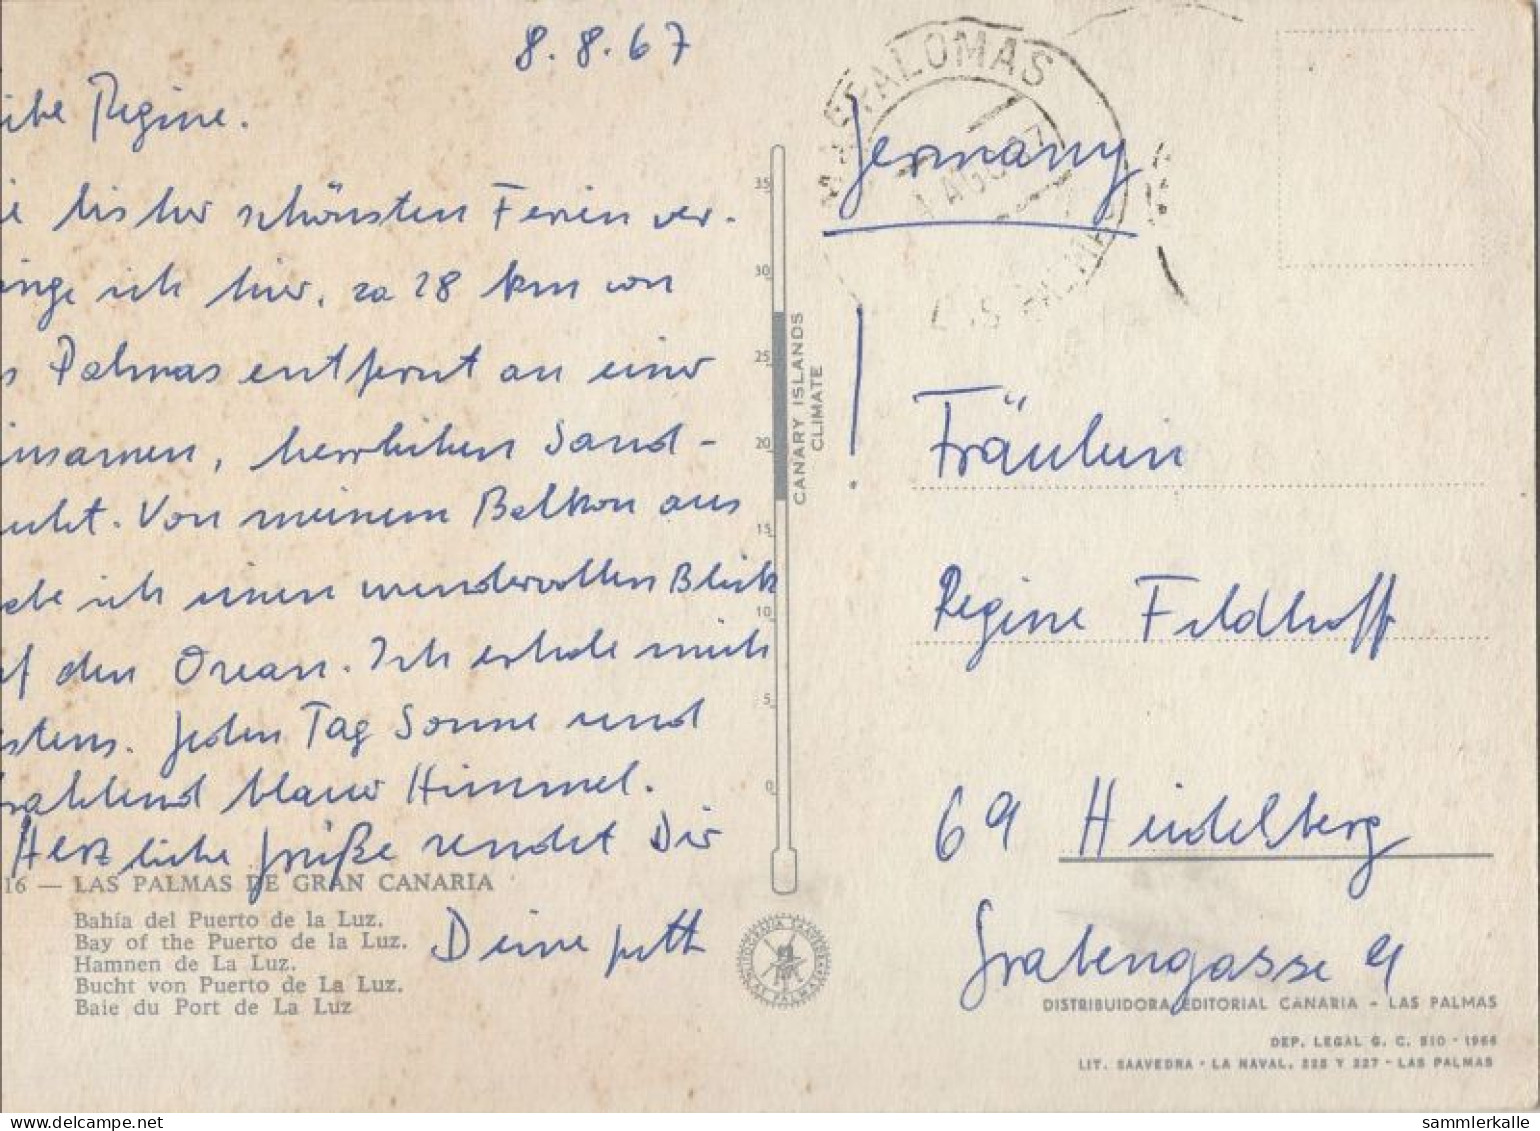 8.8.67
ibe Regine.
ie bisher schönsten Ferien ver-
inge ich hier, ca 28 km von
s Palmas entfernt an einer
insamen, herrlichen Sand-
ucht. Von meinem Balkon aus
abe ich einen wundervollen Blick
uf den Ozean. Ich erhole mich
stens. Jeden Tag Sonne und
rahlend blauer Himmel.
Herzliche Grüße sendet Dir
Deine
16 — LAS PALMAS DE GRAN CANARIA
Bahía del Puerto de la Luz.
Bay of the Puerto de la Luz.
Hamnen de La Luz.
Bucht von Puerto de La Luz.
Baie du Port de La Luz
35
30
25
20
15
10
5
0
CANARY ISLANDS
CLIMATE
LITOGRAFIA SAAVEDRA
LAS PALMAS
MASPALOMAS
AGO 67
LAS PALMAS
Germany
!
Fräulein
Regine Feldhoff
69 Heidelberg
Grabengasse 9
DISTRIBUIDORA EDITORIAL CANARIA - LAS PALMAS
DEP. LEGAL G. C. 510 - 1966
LIT. SAAVEDRA - LA NAVAL, 225 Y 227 - LAS PALMAS
delcampe.net
sammlerkalle